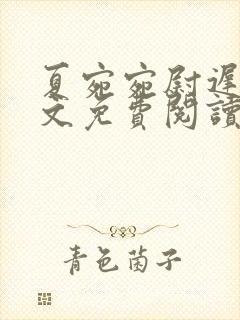 夏宛宛尉遲
文免費閱讀
青色茵子